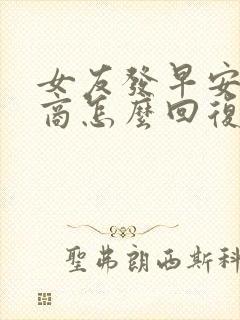 女友發早安
商怎麼回復
聖弗朗西斯科